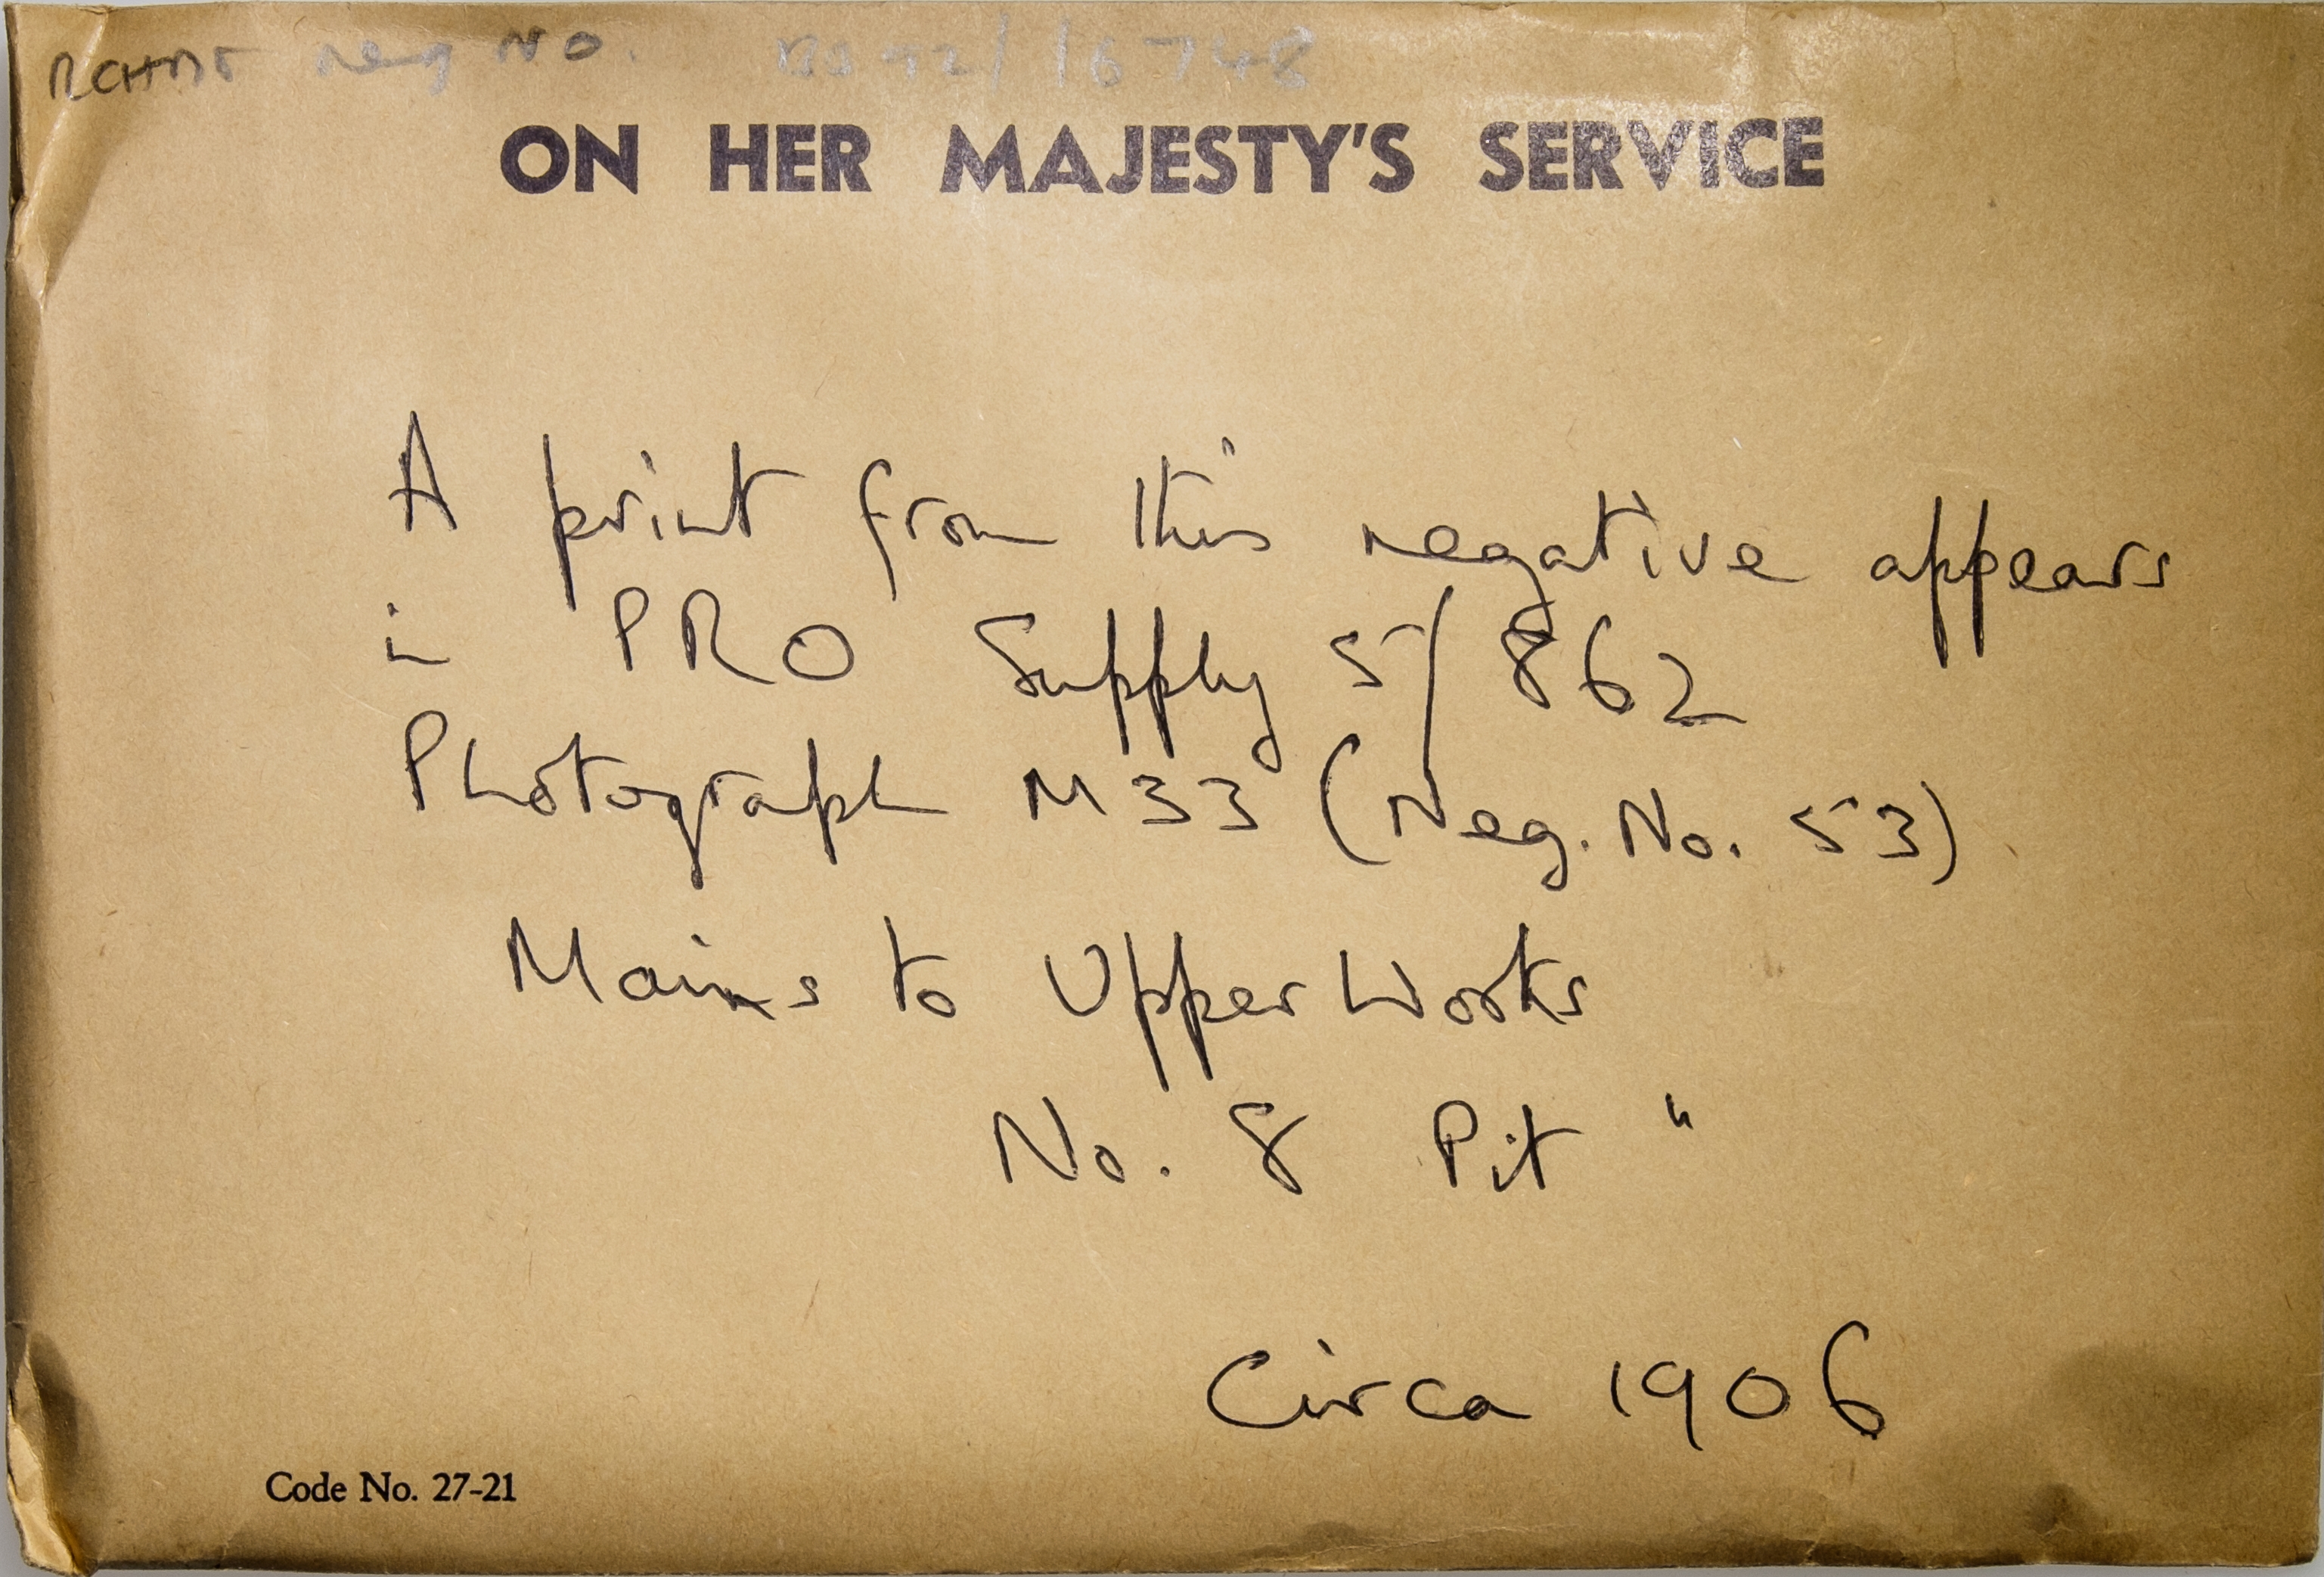 RCHME Neg No. BB92/16748
ON HER MAJESTY'S SERVICE
A print from this negative appears
in PRO Supply 5/862
Photograph M33 (Neg. No. 53)
Mains to Upper Works
No. 8 Pit "
Circa 1906
Code No. 27-21